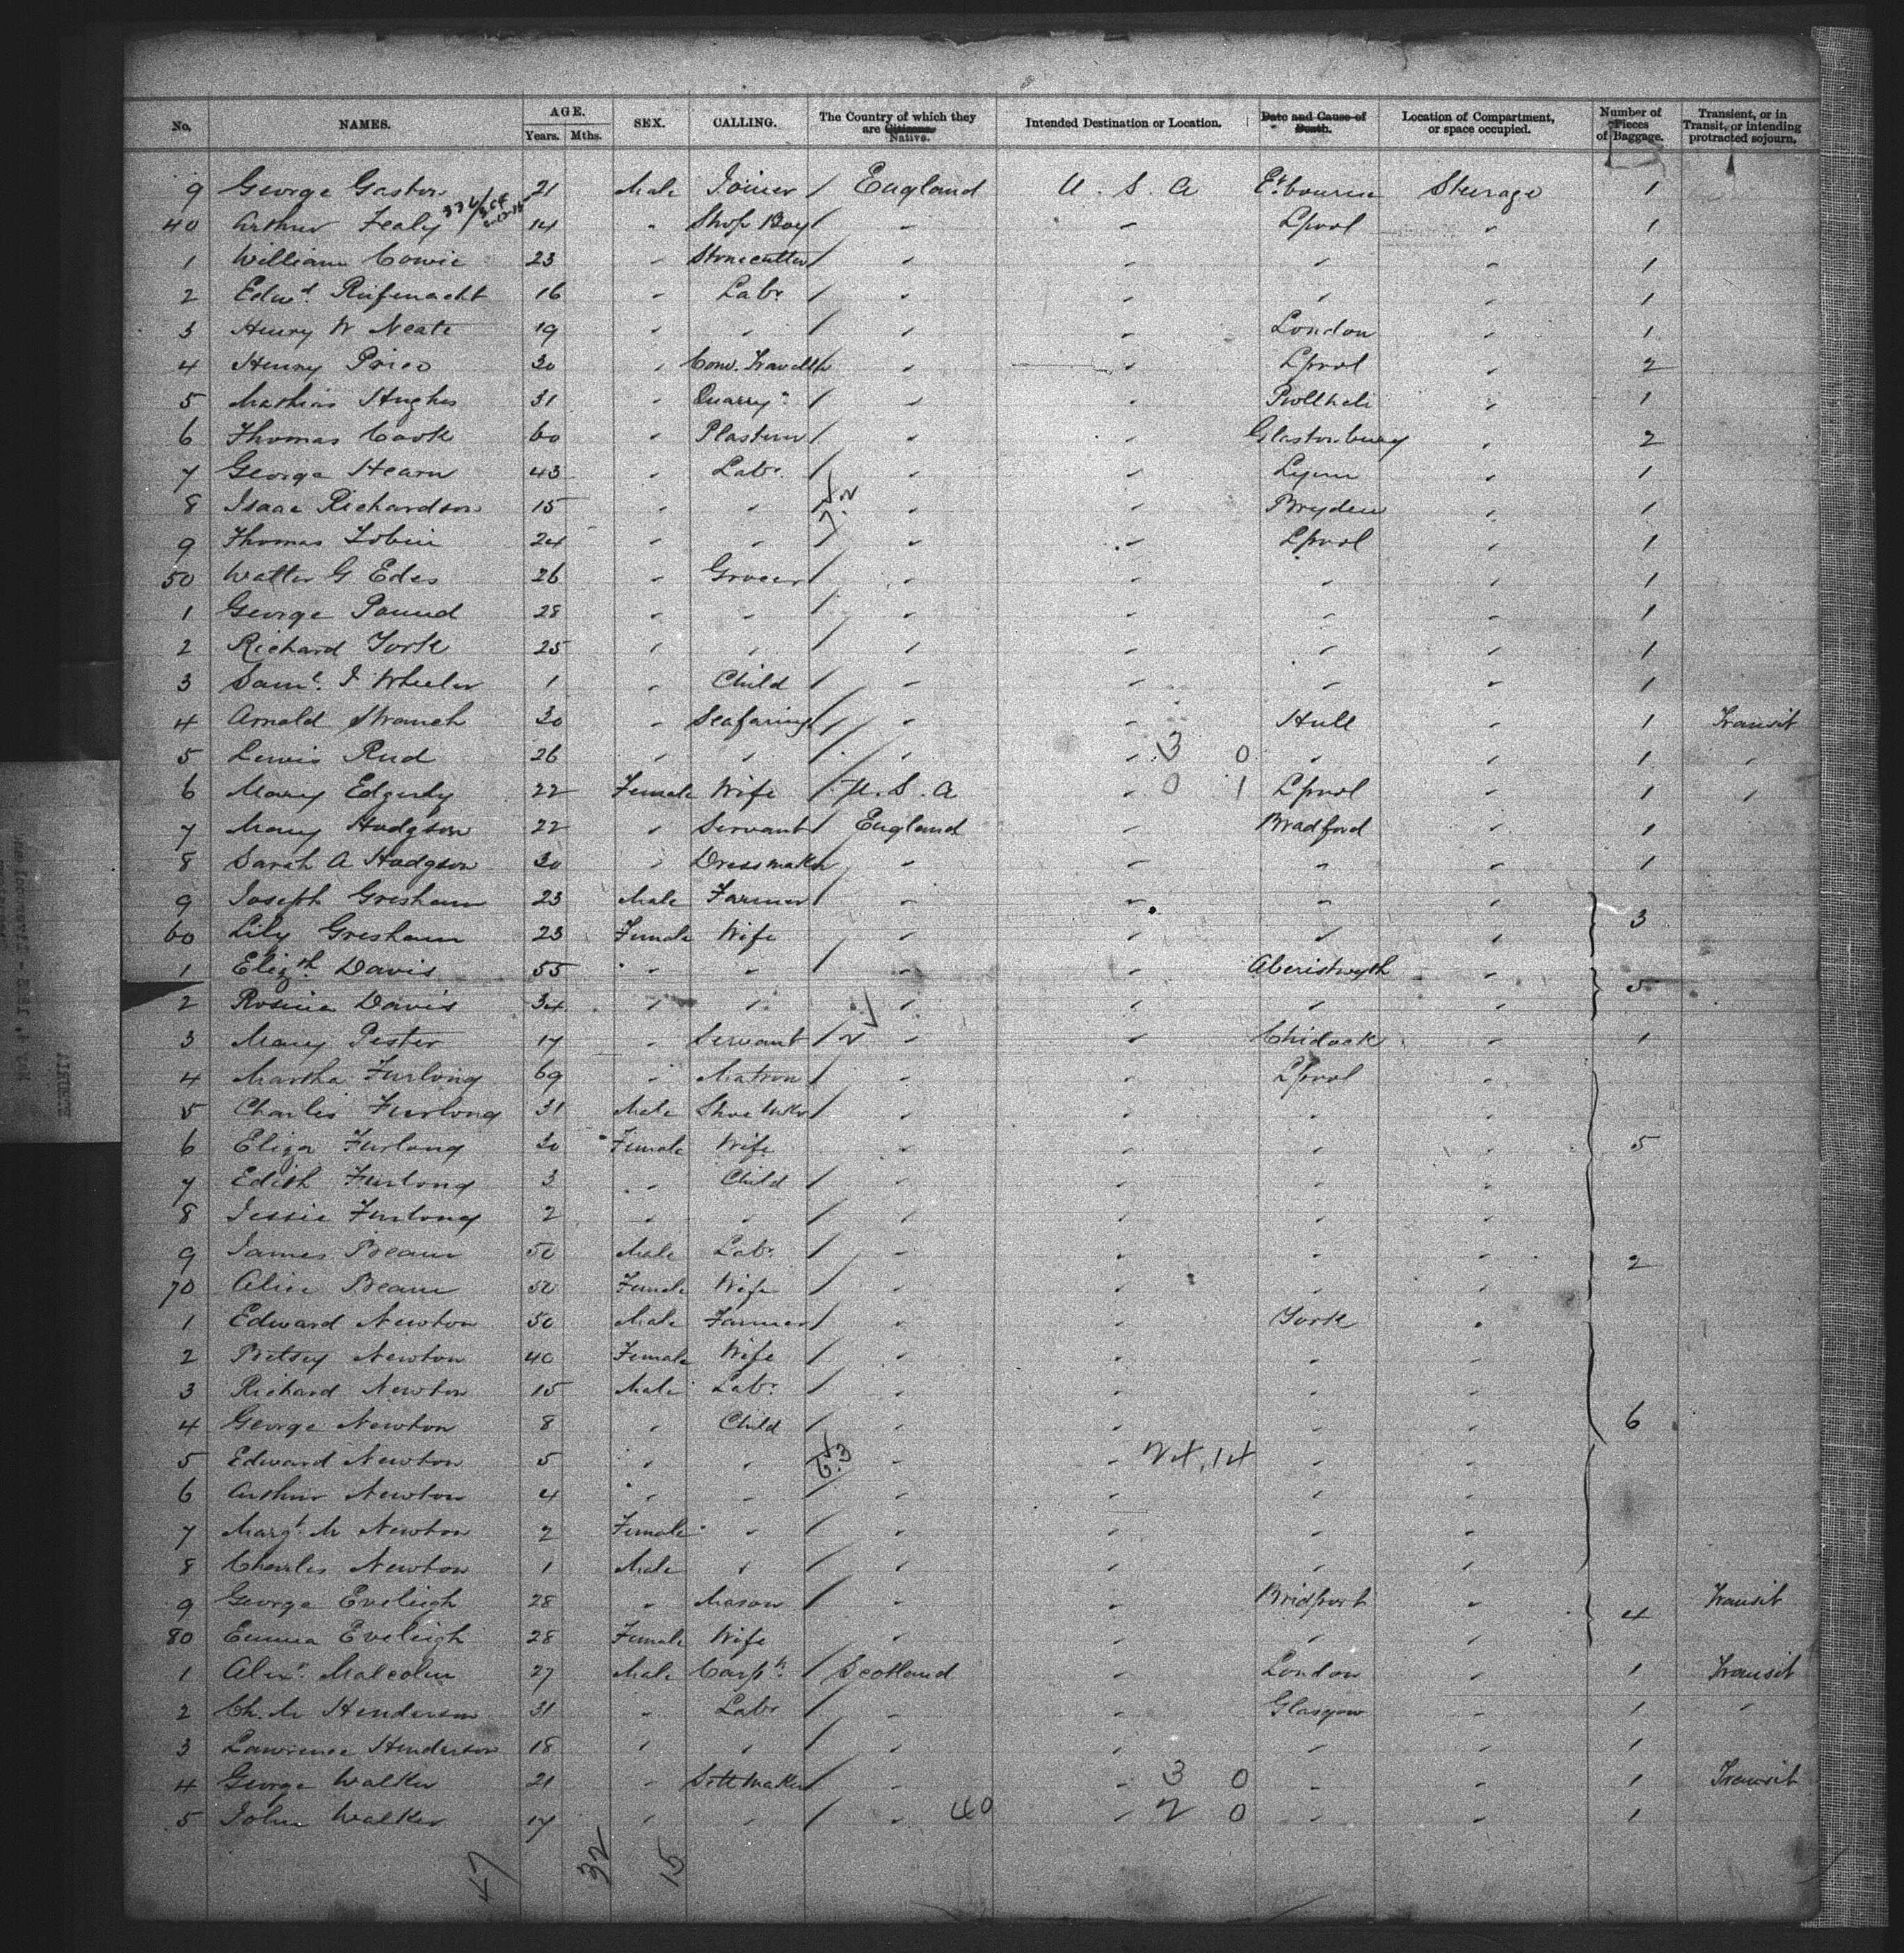 No. NAMES. AGE. Years. Mths. SEX. CALLING. The Country of which they are Citizens. Native. Intended Destination or Location. Date and Cause of Death. Location of Compartment, or space occupied. Number of Pieces of Baggage. Transient, or in Transit, or intending protracted sojourn.
9 George Gaston 21 Male Joiner / England U. S. A Etbourne Steerage 1
40 Arthur Fealy 14 " Shop Boy / " " Lpool " 1
1 William Cowie 23 " Stonecutter / " " " " 1
2 Edwd. Rufenacht 16 " Labr / " " " " 1
3 Henry W Neate 19 " " / " " London " 1
4 Henry Price 30 " Com. Traveller / " " Lpool " 2
5 Mathias Hughes 31 " Quarryn / " " Pwllheli " 1
6 Thomas Cook 60 " Plasterer / " " Glastonbury " 2
7 George Hearn 43 " Labr. / " " Lynn " 1
8 Isaac Richardson 15 " " / " " Bryden " 1
9 Thomas Tobin 24 " " / " " Lpool " 1
50 Walter G Edes 26 " Grocer / " " " " 1
1 George Pound 28 " " / " " " " 1
2 Richard York 25 " " / " " " " 1
3 Saml. J Wheeler 1 " Child / " " " " 1
4 Arnald Strauch 30 " Seafaring / " " Hull " 1 Transit
5 Lewis Rud 26 " " / " " 3 0 " " 1 "
6 Mary Edgerly 22 Female Wife / U. S. A " 0 1 Lpool " 1 "
7 Mary Hodgson 22 " Servant / England " Bradford " 1
8 Sarah A Hodgson 30 " Dressmaker " " " " 1
9 Joseph Gresham 23 Male Farmer / " " " " 3
60 Lily Gresham 23 Female Wife " " " "
1 Elizth. Davis 55 " " / " " Aberistwyth " 5
2 Rosina Davis 34 " " " " " "
3 Mary Pester 17 " Servant / " " Chidoak " 1
4 Martha Furlong 69 " Matron / " " Lpool "
5 Charles Furlong 31 Male Shoe Mkr / " " " "
6 Eliza Furlong 30 Female Wife " " " " 5
7 Edith Furlong 3 " Child / " " " "
8 Jessie Furlong 2 " " / " " " "
9 James Beam 50 Male Labr / " " " " 2
70 Alice Beam 50 Female Wife / " " " "
1 Edward Newton 50 Male Farmer / " " York "
2 Betsey Newton 40 Female Wife / " " " "
3 Richard Newton 15 Male Labr / " " " "
4 George Newton 8 " Child / " " " " 6
5 Edward Newton 5 " " 6.3 " " " "
6 Arthur Newton 4 " " / " " " "
7 Margt. M Newton 2 Female " / " " " "
8 Charles Newton 1 Male " / " " " "
9 George Eveleigh 28 " Mason / " " Bridport " 4 Transit
80 Emma Eveleigh 28 Female Wife " " " "
1 Alexr. Malcolm 27 Male Carptr. / Scotland " London " 1 Transit
2 Ch. M Henderson 31 " Labr / " " Glasgow " 1 "
3 Lawrence Henderson 18 " " / " " " " 1
4 George Walker 21 " Settmaker / " " 3 0 " " 1 Transit
5 John Walker 17 " " / " 40 " 2 0 " " 1
47 32 15